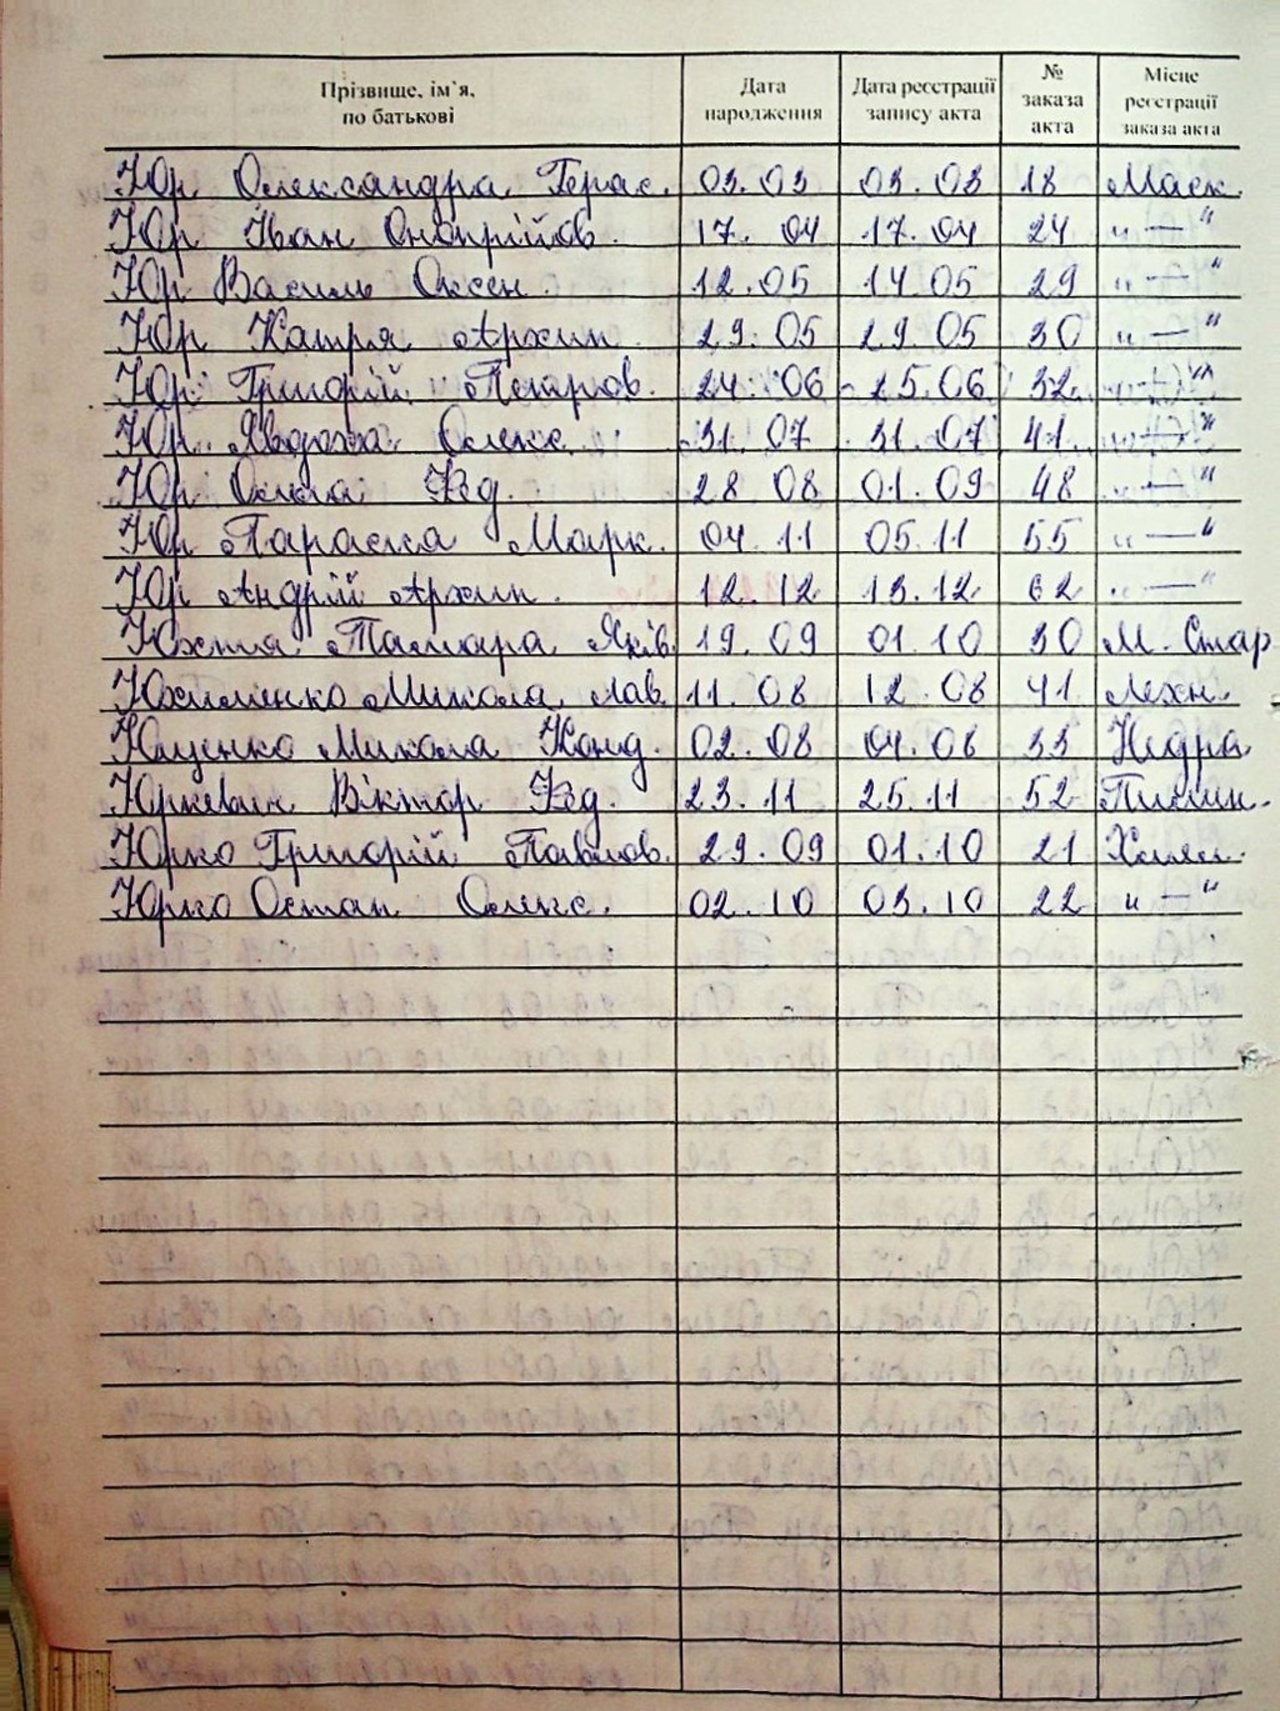 Прізвище, ім'я, по батькові Дата народження Дата реєстрації запису акта № заказа акта Місце реєстрації заказа акта
Юр Олександра Герас. 03.03 03.03 18 Маск.
Юр Іван Онопрійов. 17.04 17.04 24 " — "
Юр Василь Оксен. 12.05 14.05 29 " — "
Юр Катря Архип. 29.05 29.05 30 " — "
Юр Григорій Петров. 24.06 25.06 32 " — "
Юр Явдоха Олекс. 31.07 31.07 41 " — "
Юр Ольга Фед. 28 08 01.09 48 " — "
Юр Параска Марк. 04.11 05.11 55 " — "
Юр Андрій Архип. 12.12 13.12 62 " — "
Юхта Тамара Яків. 19.09 01.10 30 М. Стар
Юхименко Микола Лав. 11.08 12.08 41 Лехн.
Ющенко Микола Конд. 02.08 04.08 33 Недра
Юркевич Віктор Фед. 23.11 25.11 52
Юрко Григорій Павлов. 29.09 01.10 21
Юрко Остап Олекс. 02.10 03.10 22 " — "